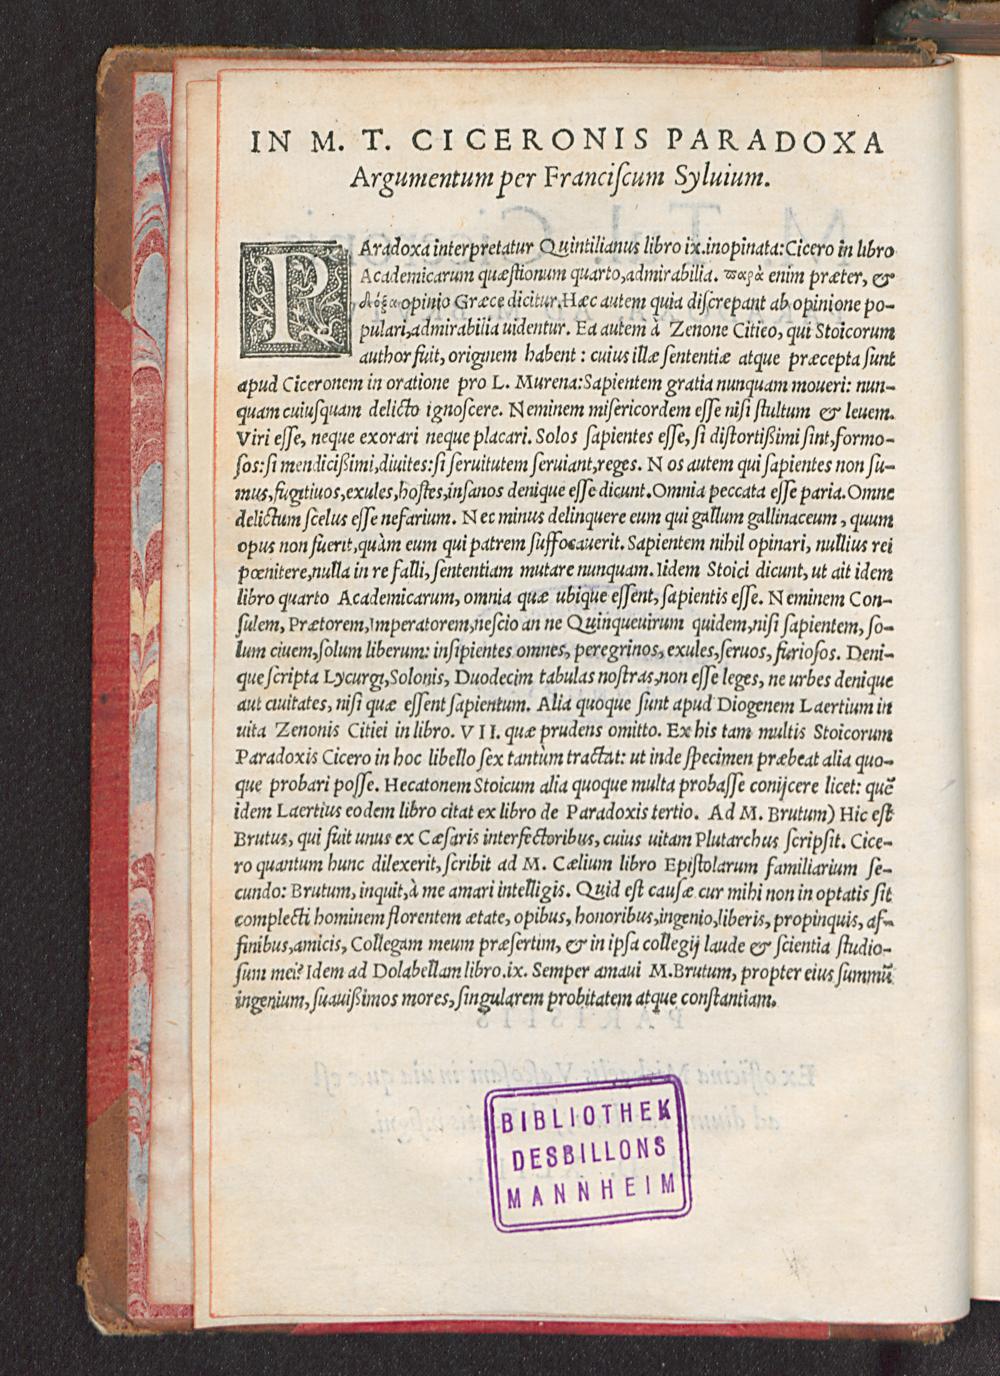 IN M. T. CICERONIS PARADOXA
Argumentum per Franciſcum Syluium.
PAradoxa interpretatur Quintilianus libro ix. inopinata: Cicero in libro
Academicarum quæſtionum quarto, admirabilia. παρὰ enim præter, &
δόξα opinio Græce dicitur. Hæc autem quia diſcrepant ab opinione po-
pulari, admirabilia uidentur. Ea autem à Zenone Citieo, qui Stoicorum
author fuit, originem habent: cuius illæ ſententiæ atque præcepta ſunt
apud Ciceronem in oratione pro L. Murena: Sapientem gratia nunquam moueri: nun-
quam cuiuſquam delicto ignoſcere. Neminem miſericordem eſſe niſi ſtultum & leuem.
Viri eſſe, neque exorari neque placari. Solos ſapientes eſſe, ſi diſtortißimi ſint, formo-
ſos: ſi mendicißimi, diuites: ſi ſeruitutem ſeruiant, reges. Nos autem qui ſapientes non ſu-
mus, fugitiuos, exules, hoſtes, inſanos denique eſſe dicunt. Omnia peccata eſſe paria. Omne
delictum ſcelus eſſe nefarium. Nec minus delinquere eum qui gallum gallinaceum, quum
opus non fuerit, quàm eum qui patrem ſuffocauerit. Sapientem nihil opinari, nullius rei
pœnitere, nulla in re falli, ſententiam mutare nunquam. Iidem Stoici dicunt, ut ait idem
libro quarto Academicarum, omnia quæ ubique eſſent, ſapientis eſſe. Neminem Con-
ſulem, Prætorem, Imperatorem, neſcio an ne Quinqueuirum quidem, niſi ſapientem, ſo-
lum ciuem, ſolum liberum: inſipientes omnes, peregrinos, exules, ſeruos, furioſos. Deni-
que ſcripta Lycurgi, Solonis, Duodecim tabulas noſtras, non eſſe leges, ne urbes denique
aut ciuitates, niſi quæ eſſent ſapientum. Alia quoque ſunt apud Diogenem Laertium in
uita Zenonis Citiei in libro. VII. quæ prudens omitto. Ex his tam multis Stoicorum
Paradoxis Cicero in hoc libello ſex tantùm tractat: ut inde ſpecimen præbeat alia quo-
que probari poſſe. Hecatonem Stoicum alia quoque multa probaſſe conijcere licet: quē
idem Laertius eodem libro citat ex libro de Paradoxis tertio. Ad M. Brutum) Hic eſt
Brutus, qui fuit unus ex Cæſaris interfectoribus, cuius uitam Plutarchus ſcripſit. Cice-
ro quantum hunc dilexerit, ſcribit ad M. Cælium libro Epiſtolarum familiarium ſe-
cundo: Brutum, inquit, à me amari intelligis. Quid eſt cauſæ cur mihi non in optatis ſit
complecti hominem florentem ætate, opibus, honoribus, ingenio, liberis, propinquis, af-
finibus, amicis, Collegam meum præſertim, & in ipſa collegij laude & ſcientia ſtudio-
ſum mei? Idem ad Dolabellam libro. ix. Semper amaui M. Brutum, propter eius ſummū
ingenium, ſuauißimos mores, ſingularem probitatem atque conſtantiam.
BIBLIOTHEK
DESBILLONS
MANNHEIM